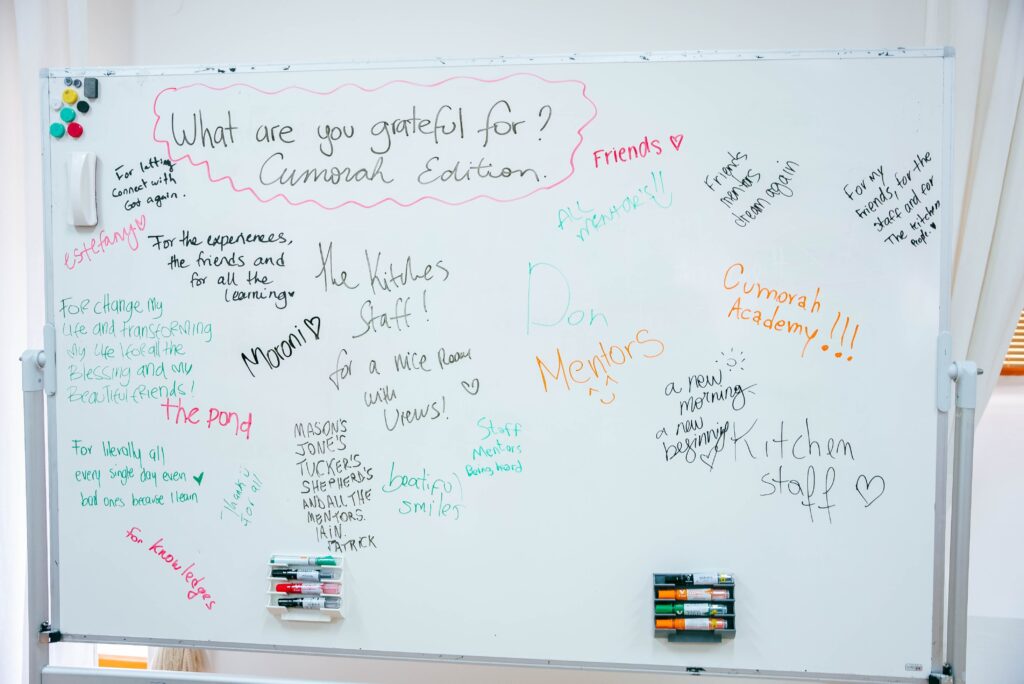 What are you grateful for?
Cumorah Edition.
For letting
Connect with
God again.
estefany
For the experiences,
the friends and
for all the
learning
For change my
life and transforming
my life! for all the
Blessing and my
Beautiful friends!
the pond
For literally all
every single day even
bad ones because I learn
Thank u
for all
for knowledges
the Kitches
Staff!
Moroni
for a nice Room
with
Views!
MASON'S
JONE'S
TUCKER'S
SHEPHERD'S
AND ALL THE
MENTORS.
IAIN.
PATRICK
beatiful
smiles
Staff
Mentors
Being hard
Friends
ALL
MENTOR'S!!
Friends
mentors
dream again
For my
friends, for the
staff and for
The kitchen
People.
Don
Mentors
Cumorah
Academy!!!
a new
morning
a new
beginning
Kitchen
staff